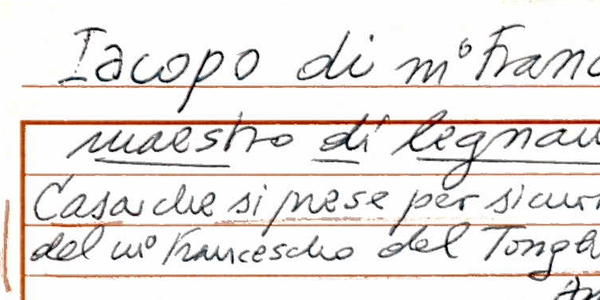 Iacopo di mº Franc
maestro di legnam
Casa che si prese per sicur
del mº Francescho del Tongh